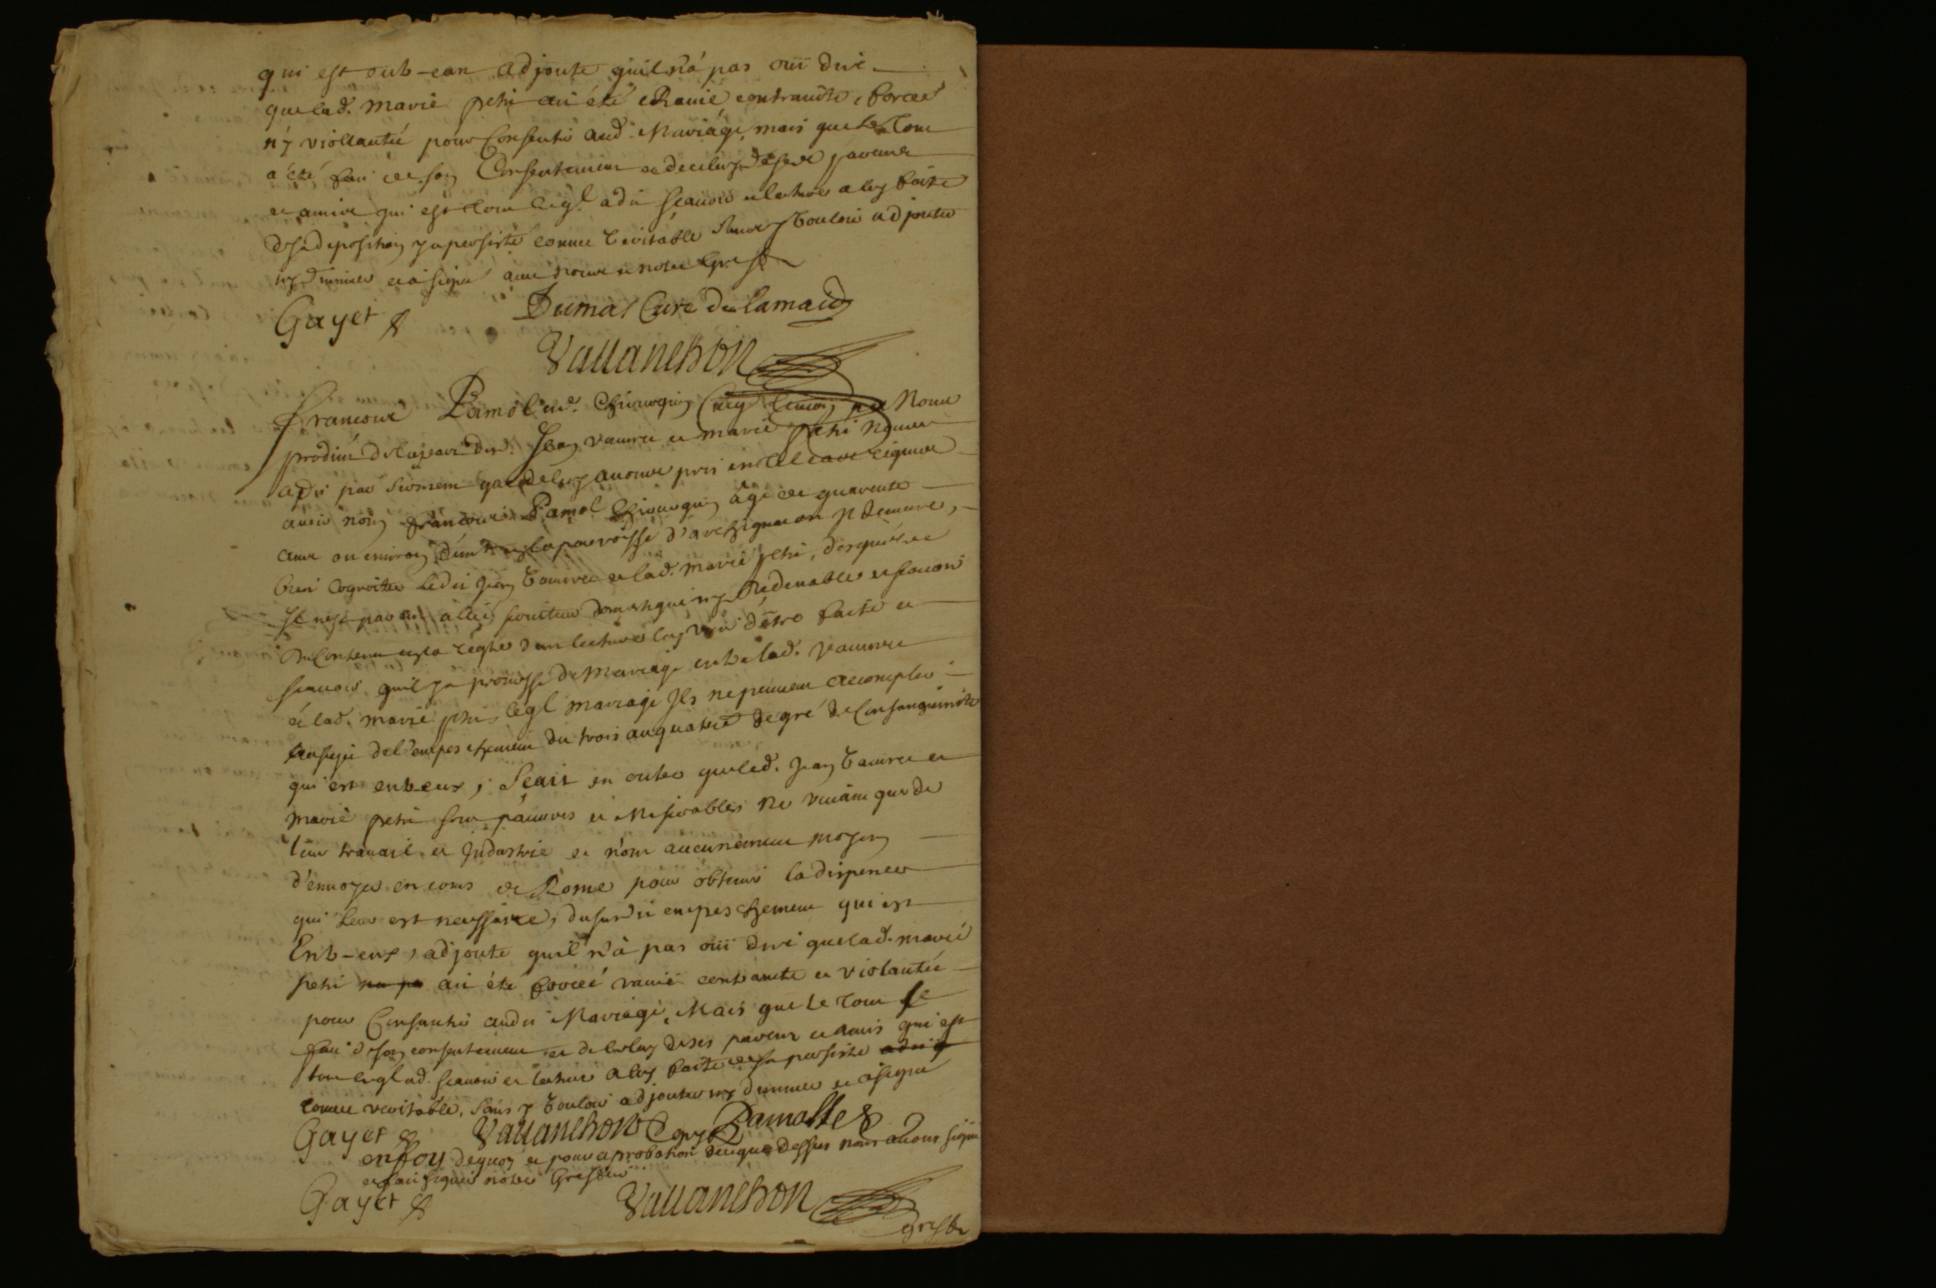 qui est entr-eux adjoute quil n'a pas ouï dire
que lad. marie petit ait été Ravie contrainte, forcée
n'y viollantée pour Consentir aud. Mariage, mais que le Tout
a été fait de son Consentement et de celuy de ses parents
et amis qui est tout leql a dit sçavoir et lecture a luy faite
de sa deposition y a persisté comme veritable sans y vouloir adjouter
ny diminuer et a signé avec nous et notre Greff
Gayet Dumas Curé de Lamaid
Vallanchon
Francois Ramol me. Chirurgien temoin par Nous
produit de la part desd. Jean vauvre et marie petit Nous
a dit par serment que de luy avons pris en tel cas requis
avoir nom francois Ramol Chirurgien âgé de quarente
ans ou environ la parroisse d'archignat on y demeure,
bien cognoitre ledit Jean vauvre et lad. marie petit, desquels
Il n'est parent allié, serviteur domestique ny Redevable et sçavoir
le Contenu lecture luy d'être faite et
sçavoir quil y a promesse de Mariage entre led. vauvre
et lad. marie petit leql mariage Ils ne peuvent accomplir
au sujet de l'empeschement du trois au quatre degré de Consanguinité
qui est entr eux, Sçait en outre que led. Jean vauvre et
marie petit sont pauvres et Miserables ne vivant que de
leur travail et Industrie et n'ont aucunement moyen
d'envoyer en cour de Rome pour obtenir la dispence
qui leur est necessaire, du susdit empeschement qui est
Entr-eux, adjoute quil n'a pas ouii dire que lad. marie
petit ait été forcée ravie contrainte et violantée
pour Consentir audit Mariage, Mais que le Tout se
fait de son consentement et de celuy de ses parens et amis qui est
tout leql ad. sçavoir et lecture a luy faite y a persisté
comme veritable, sans y vouloir adjouter ny diminuer et a signé
Gayet Vallanchon Ramolle
en foy dequoy et pour aprobation de ce que dessus nous avons signé
et fait signer notre Greffier
Gayet Vallanchon
greffier